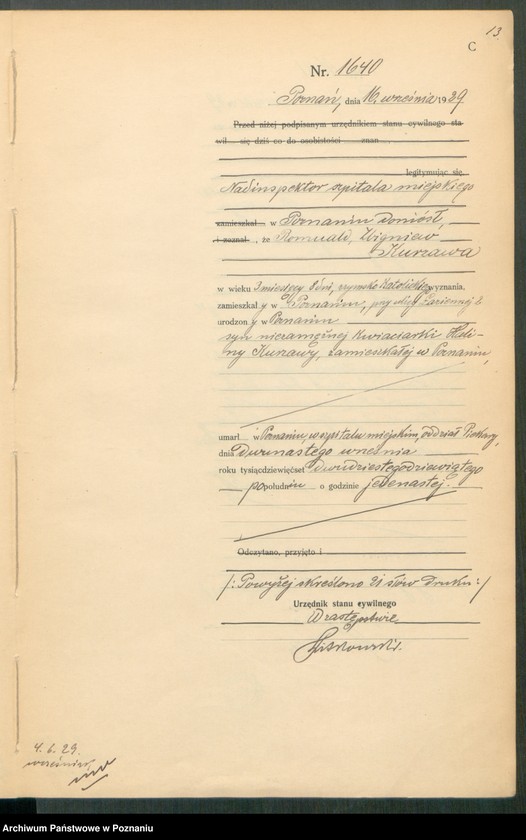 13.
C
Nr. 1640
Poznań, dnia 16. września 1929
Przed niżej podpisanym urzędnikiem stanu cywilnego sta-
wił się dziś co do osobistości znan
legitymując się
Nadinspektor szpitala miejskiego
zamieszkał w Poznaniu doniósł,
i zeznał, że Romuald, Zbigniew
Kurzawa
w wieku 3 miesięcy 8 dni, rzymsko katolickiego wyznania,
zamieszkały w Poznaniu, przy ulicy Łaziennej 2
urodzony w Poznaniu
syn niezamężnej kwiaciarki Hali-
ny Kurzawy, zamieszkałej w Poznaniu,
umarł w Poznaniu, w szpitalu miejskim, oddział Piekary,
dnia dwunastego września
roku tysiącdziewięćset dwudziestegodziewiątego
po południu o godzinie jedenastej.
Odczytano, przyjęto i
/: Powyżej skreślono 21 słów druku :/
Urzędnik stanu cywilnego
W zastępstwie
4. 6. 29.
Archiwum Państwowe w Poznaniu